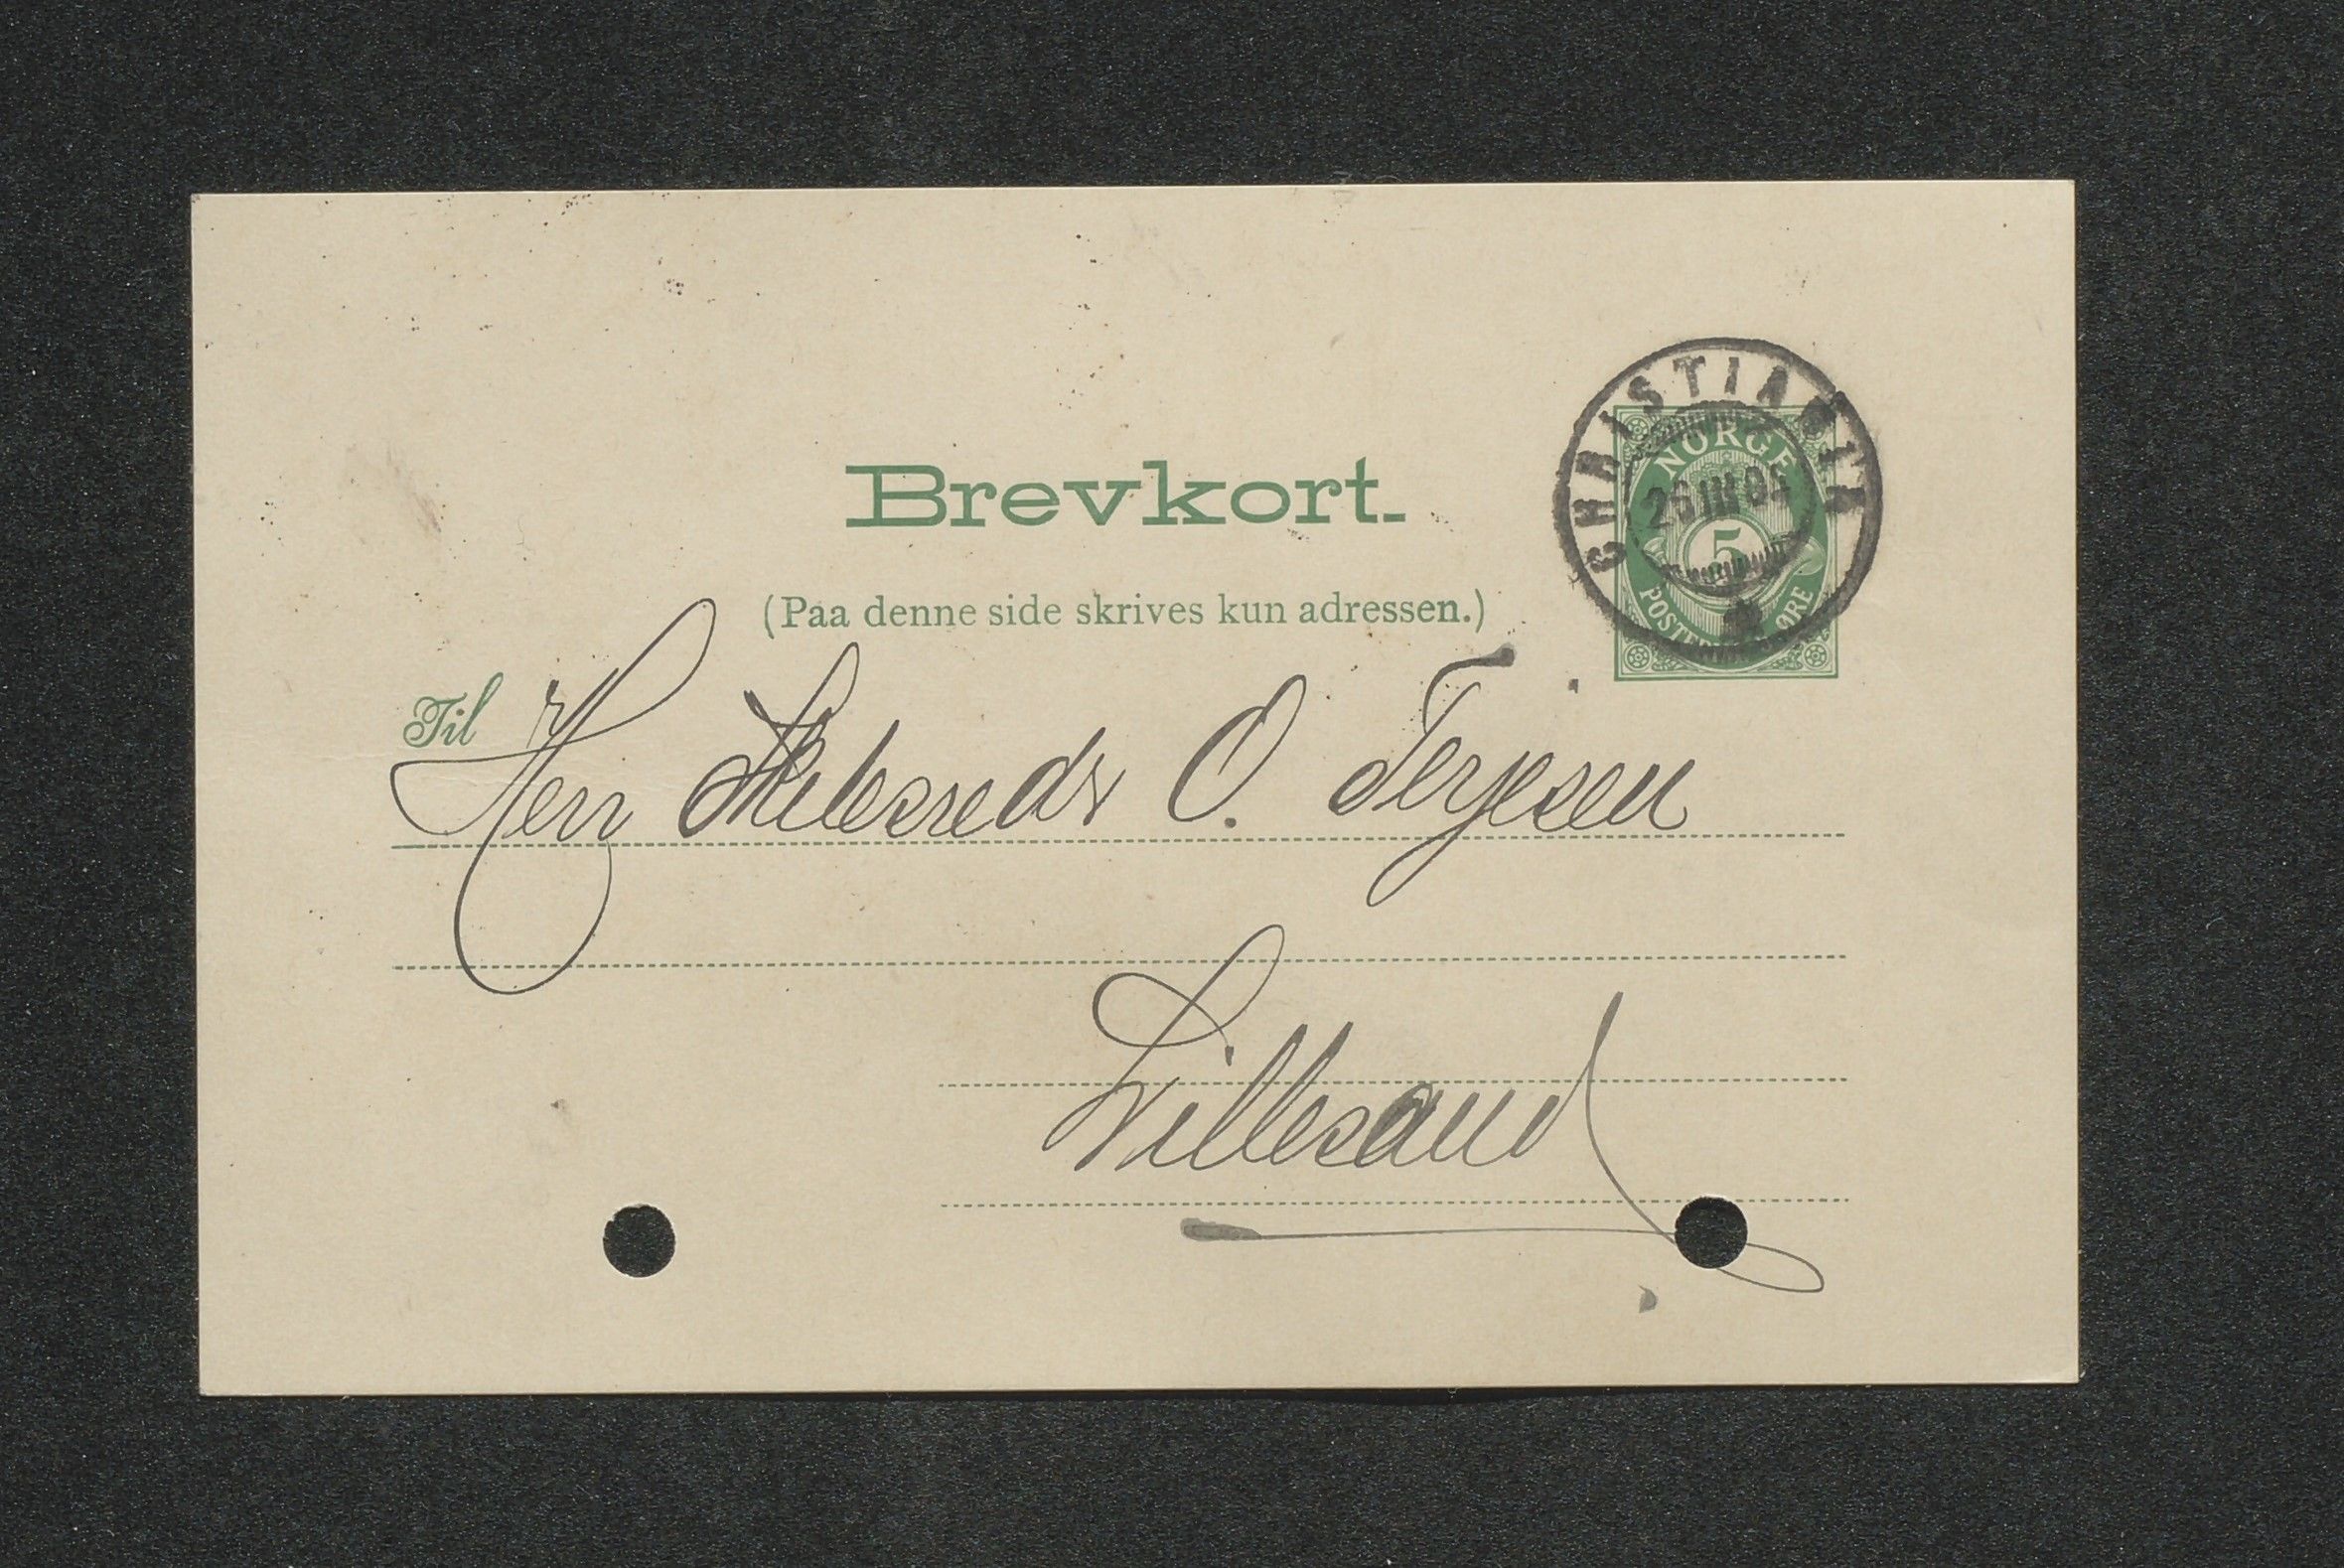 CHRISTIANIA
NORGE
26 III 0
5
POSTFRIM ØRE
Brevkort.
(Paa denne side skrives kun adressen.)
Til Herr Skibsredr O. Terjesen
Lillesand